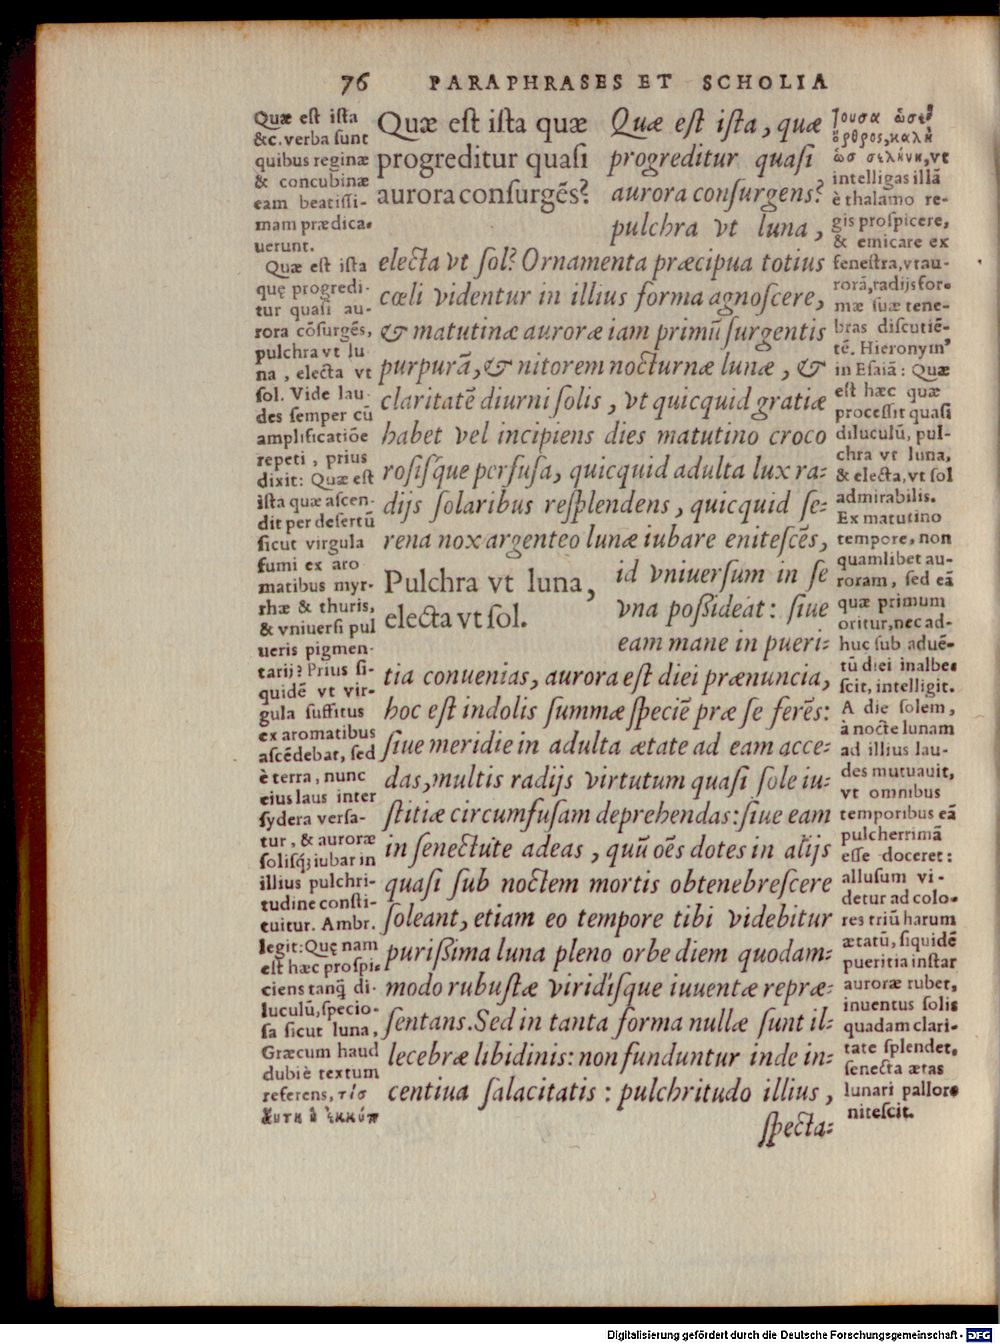 76 PARAPHRASES ET SCHOLIA
Quæ est ista
&c. verba sunt
quibus reginæ
& concubinæ
eam beatissi-
mam prædica-
uerunt.
Quæ est ista
quę progredi-
tur quasi au-
rora cōsurgēs,
pulchra vt lu
na, electa vt
sol. Vide lau
des semper cū
amplificatiōe
repeti, prius
dixit: Quæ est
ista quæ ascen-
dit per desertū
sicut virgula
fumi ex aro
matibus myr-
rhæ & thuris,
& vniuersi pul
ueris pigmen-
tarij? Prius si-
quidē vt vir-
gula suffitus
ex aromatibus
ascēdebat, sed
è terra, nunc
eius laus inter
sydera versa-
tur, & auroræ
solisq́; iubar in
illius pulchri-
tudine consti-
tuitur. Ambr.
legit: Quę nam
est hæc prospi-
ciens tanq̄ di-
luculū, specio-
sa sicut luna,
Græcum haud
dubiè textum
referens, τίσ
ἅυτη ἡ ἐκκύπ
Quæ est ista quæ
progreditur quasi
aurora consurgēs?
Quæ est ista, quæ
progreditur quasi
aurora consurgens?
pulchra vt luna,
electa vt sol? Ornamenta præcipua totius
cœli videntur in illius forma agnoscere,
& matutinæ auroræ iam primū surgentis
purpurā, & nitorem nocturnæ lunæ, &
claritatē diurni solis, vt quicquid gratiæ
habet vel incipiens dies matutino croco
rosisq́ue perfusa, quicquid adulta lux ra-
dijs solaribus resplendens, quicquid se-
rena nox argenteo lunæ iubare enitescēs,
Pulchra vt luna,
electa vt sol.
id vniuersum in se
vna possideat: siue
eam mane in pueri-
tia conuenias, aurora est diei prænuncia,
hoc est indolis summæ speciē præ se ferēs:
siue meridie in adulta ætate ad eam acce-
das, multis radijs virtutum quasi sole iu-
stitiæ circumfusam deprehendas: siue eam
in senectute adeas, quū oēs dotes in alijs
quasi sub noctem mortis obtenebrescere
soleant, etiam eo tempore tibi videbitur
purissima luna pleno orbe diem quodam-
modo rubustæ viridisq́ue iuuentæ repræ-
sentans. Sed in tanta forma nullæ sunt il-
lecebræ libidinis: non funduntur inde in-
centiua salacitatis: pulchritudo illius,
specta-
ȷουσα ὡσεὶ
ὄρθρος, καλὴ
ὡσ σελήνη, vt
intelligas illā
è thalamo re-
gis prospicere,
& emicare ex
fenestra, vt au-
rorā, radijs for-
mæ suæ tene-
bras discutiē-
tē. Hieronymꝰ
in Esaiā: Quæ
est hæc quæ
processit quasi
diluculū, pul-
chra vt luna,
& electa, vt sol
admirabilis.
Ex matutino
tempore, non
quamlibet au-
roram, sed eā
quæ primum
oritur, nec ad-
huc sub aduē-
tū diei inalbe-
scit, intelligit.
A die solem,
à nocte lunam
ad illius lau-
des mutuauit,
vt omnibus
temporibus eā
pulcherrimā
esse doceret:
allusum vi-
detur ad colo-
res triū harum
ætatū, siquidē
pueritia instar
auroræ rubet,
inuentus solis
quadam clari-
tate splendet,
senecta ætas
lunari pallore
nitescit.
Digitalisierung gefördert durch die Deutsche Forschungsgemeinschaft - DFG